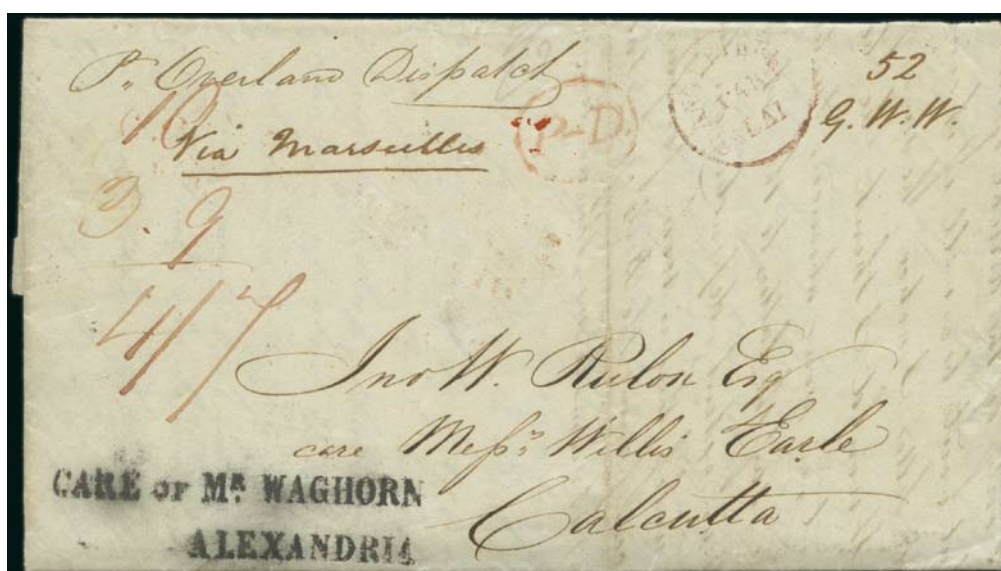 Pr Overland Dispatch
Via Marseilles
P.D.
52
G. W. W.
10
3. 9
4/7
Jno W. Rulon Esq
care Messrs Willis Earle
Calcutta
CARE OF MR WAGHORN
ALEXANDRIA